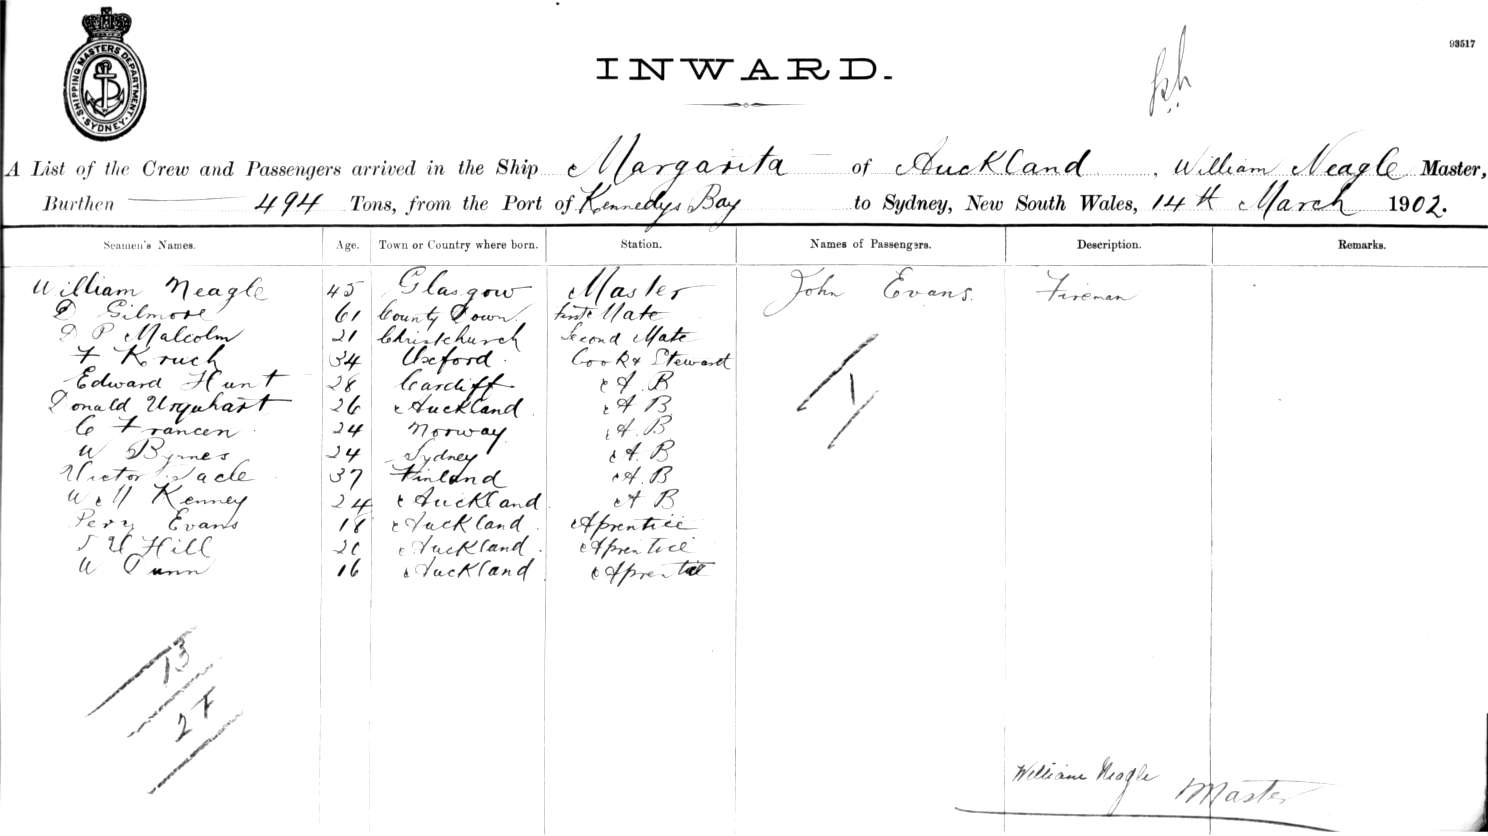 SHIPPING MASTERS DEPARTMENT. SYDNEY.
93517
INWARD.
A List of the Crew and Passengers arrived in the Ship Margarita of Auckland, William Neagle Master,
Burthen 494 Tons, from the Port of Kennedys Bay to Sydney, New South Wales, 14th March 1902.
Seamen's Names. Age. Town or Country where born. Station. Names of Passengers. Description. Remarks.
William Neagle 45 Glasgow Master John Evans. Fireman
D Gilmore 61 County Down. First Mate
D P Malcolm 21 Christchurch Second Mate
F Kruch 34 Oxford. Cook & Steward
Edward Hunt 28 Cardiff A. B
Donald Urquhart 26 Auckland. A B
C Francen 24 Norway A. B
W Byrnes 24 Sydney A. B
Victor 37 Finland A. B
Kenney 24 Auckland A B
Percy Evans 18 Auckland. Aprentice
Hill Auckland. Aprentice
W Dunn 16 Auckland Aprentice
1
13
2 F
William Neagle Master